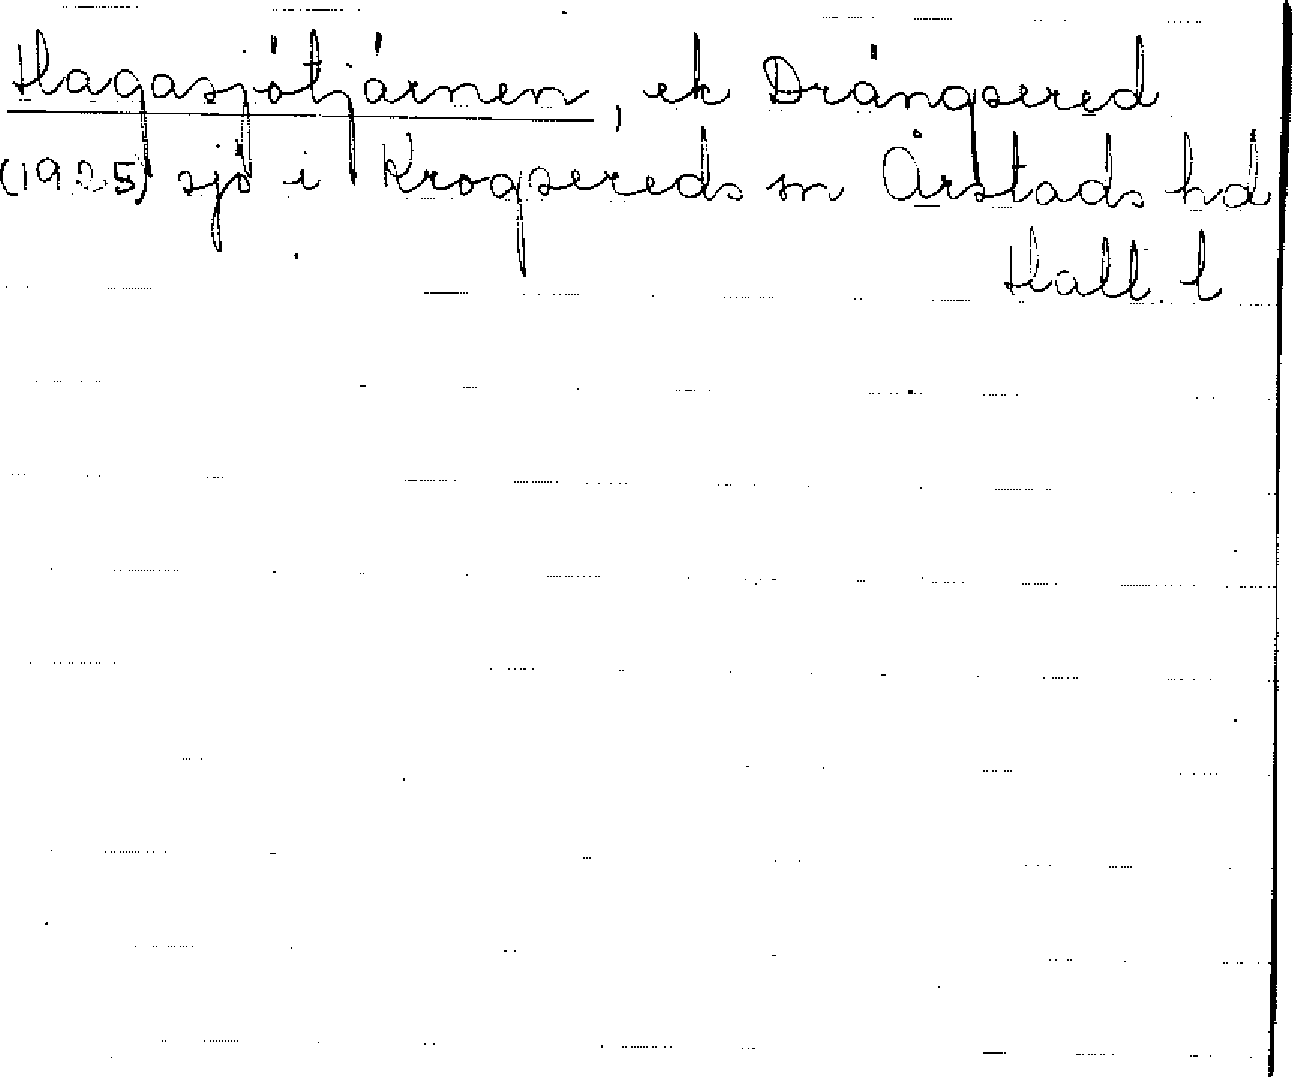 Hagasjötjärnen, ek Drängsered
(1925) sjö i Krogsereds sn Årstads hd
Hall. l